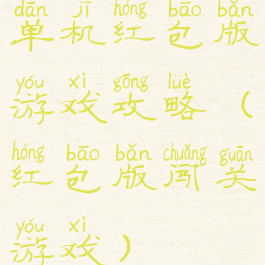 dān jī hóng bāo bǎn
单机红包版
yóu xì gōng lüè
游戏攻略（
hóng bāo bǎn chuǎng guān
红包版闯关
yóu xì
游戏）